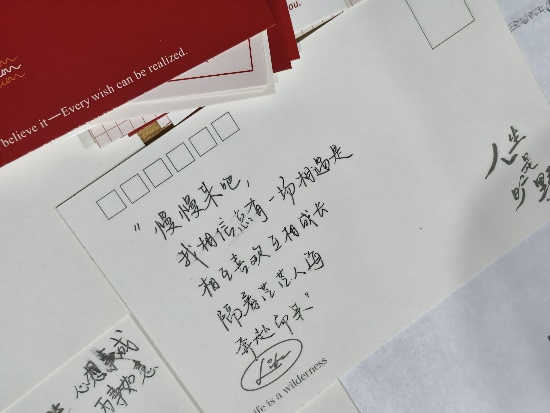 believe it—Every wish can be realized.
you.
"慢慢来吧,
我相信总有一场相遇是
相互喜欢互相成长
隔着茫茫人海
奔赴而来"
life is a wilderness
人生
旷是
心想事成
万事如意